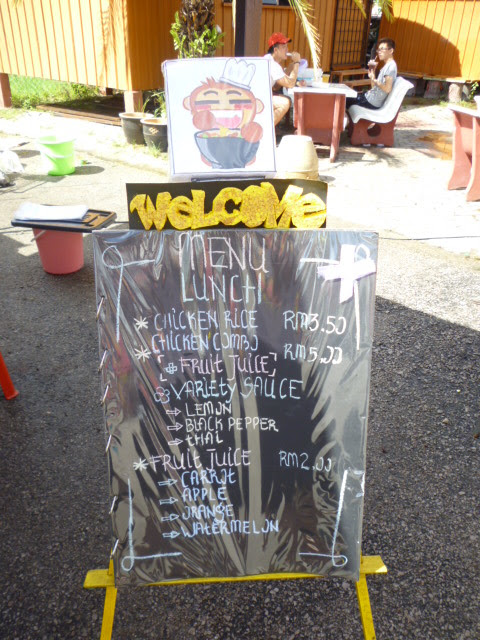 WELCOME
MENU
LUNCH
* CHICKEN RICE RM3.50
* CHICKEN COMBO RM5.00
[+ FRUIT JUICE]
VARIETY SAUCE
⇒ LEMON
⇒ BLACK PEPPER
⇒ THAI
* FRUIT JUICE RM2.00
⇒ CARROT
⇒ APPLE
⇒ ORANGE
⇒ WATERMELON